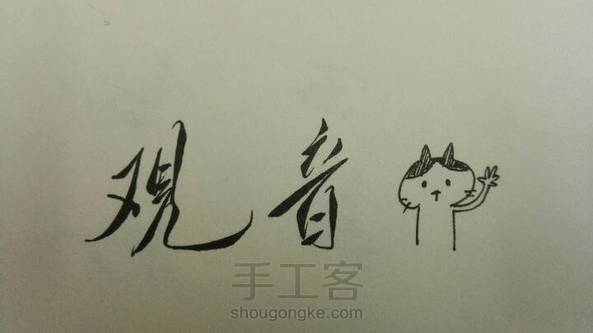 观音
手工客
shougongke.com